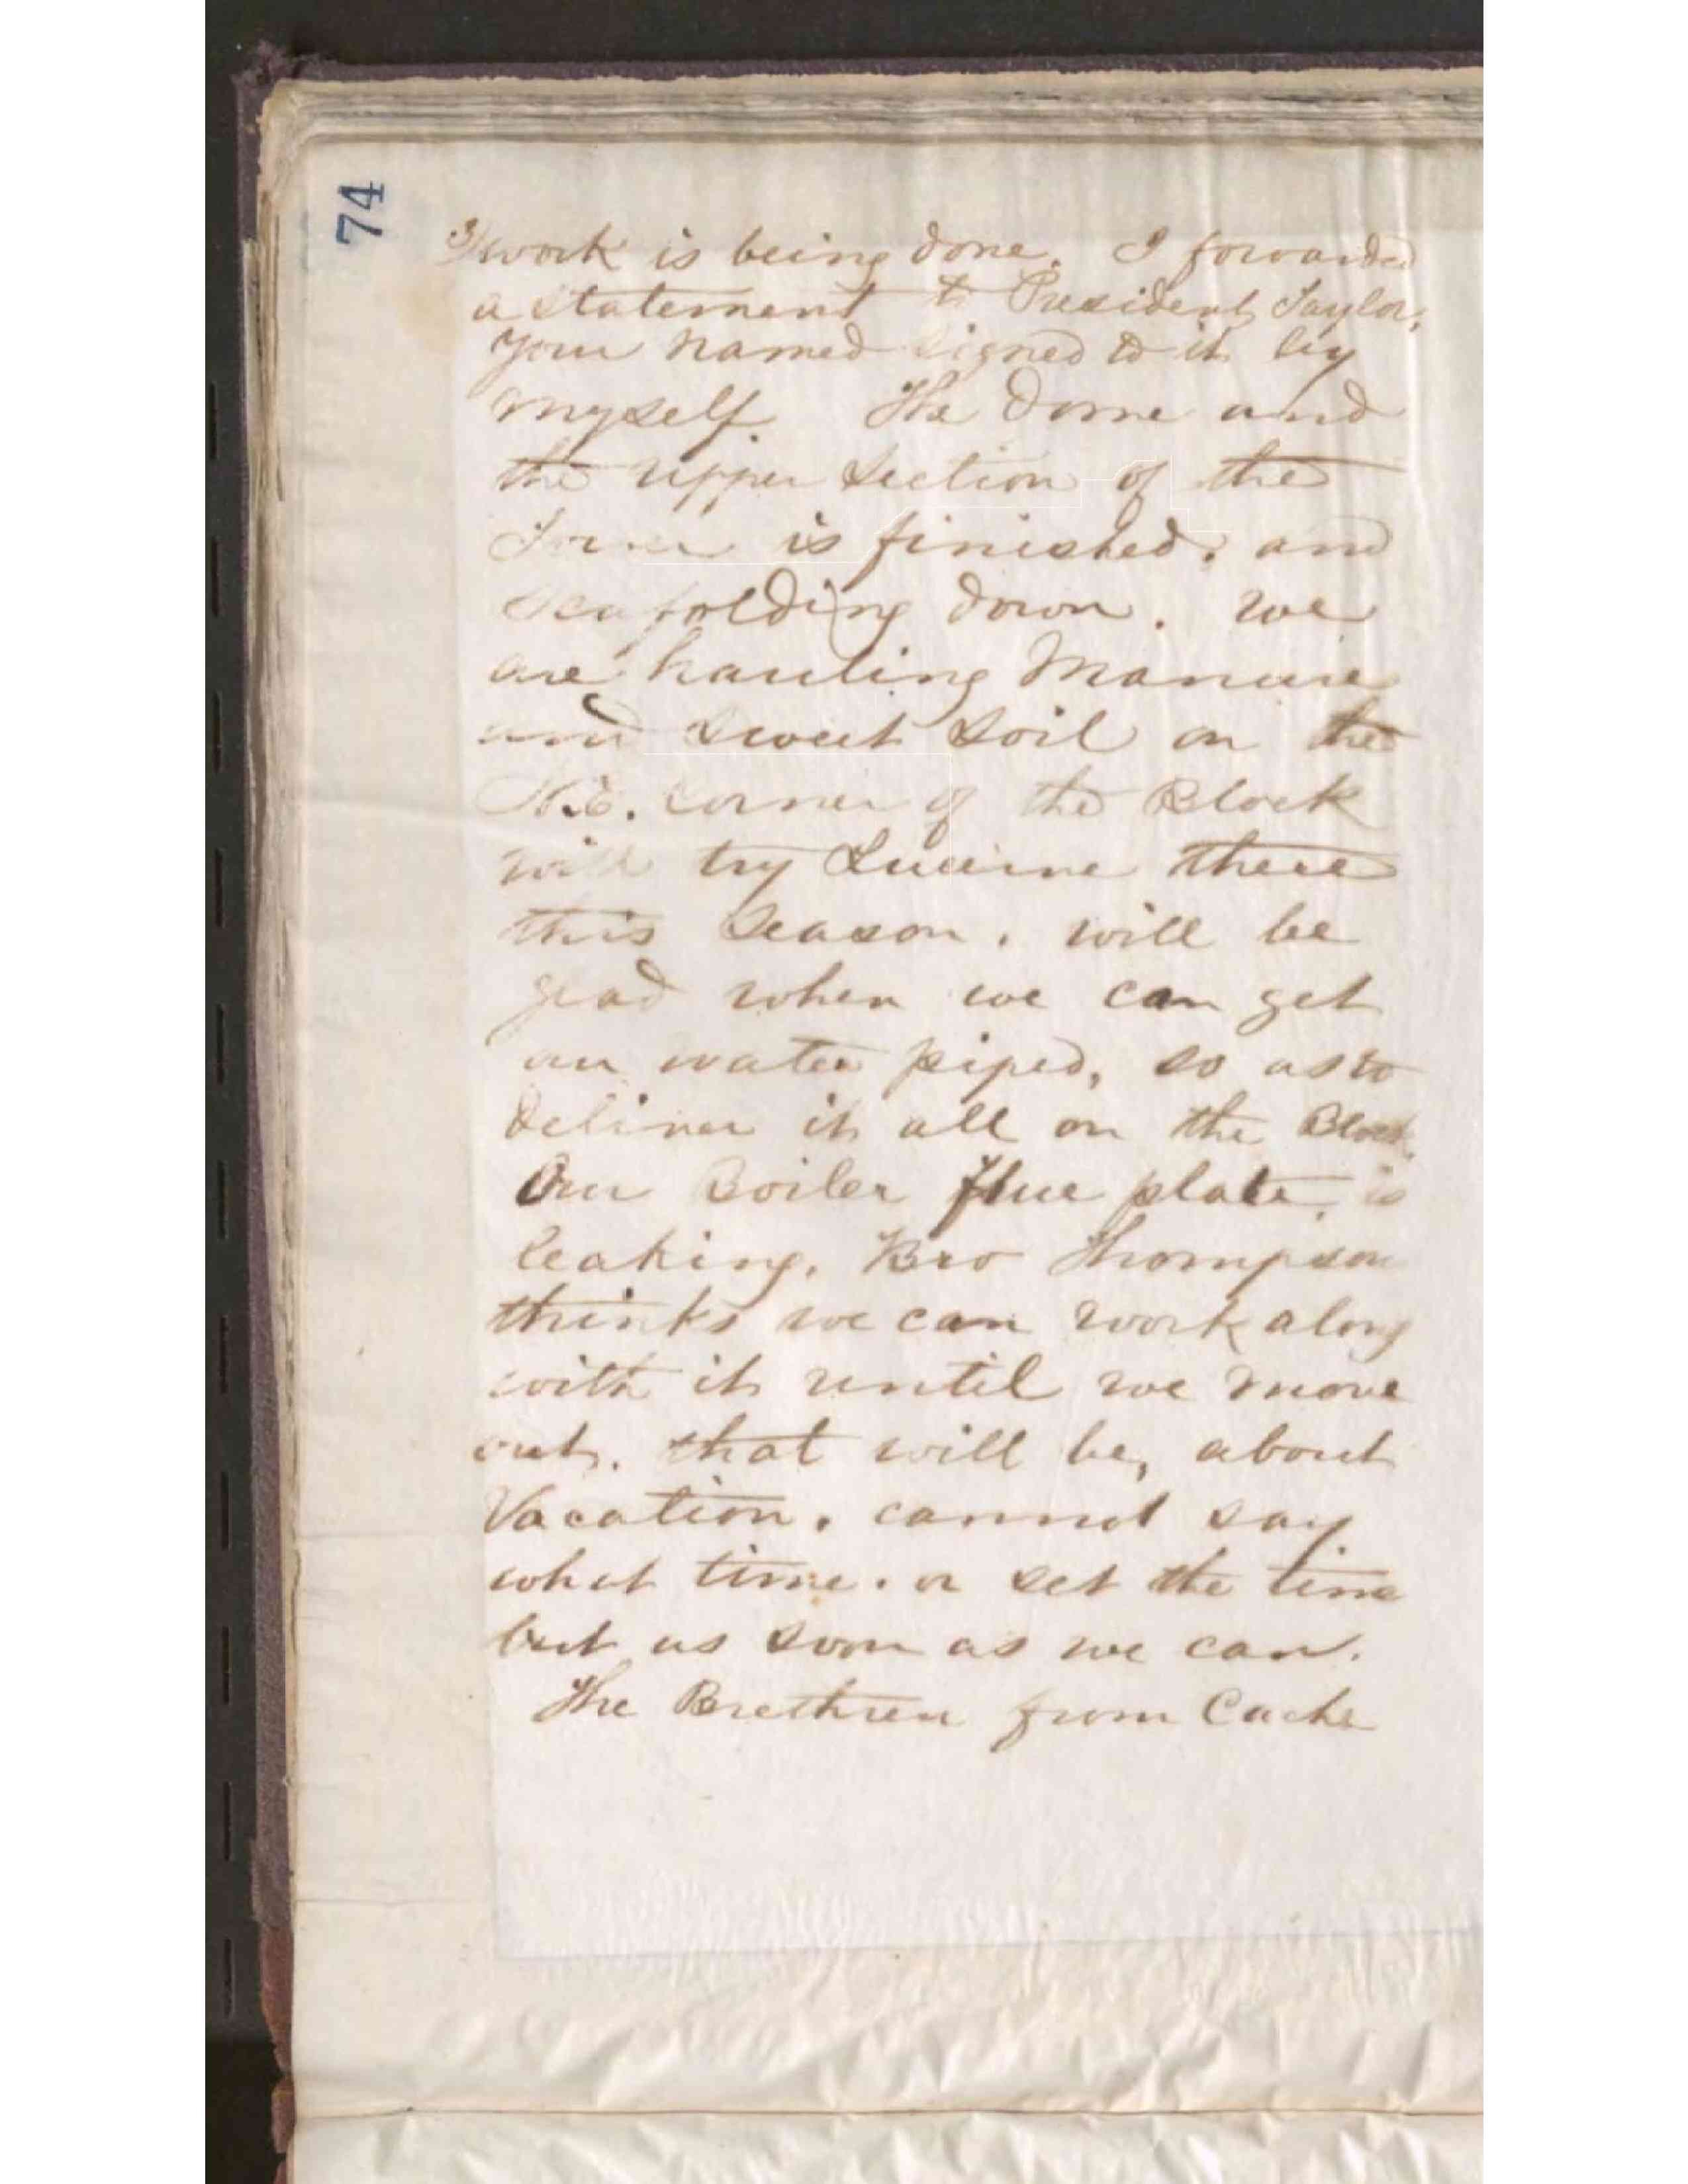 74
3/ work is being done. I forwarded
a statement to President Taylor,
your named signed to it by
myself. The Dome and
the upper section of the
Tower is finished. and
scafolding down. we
are hauling Manure
and sweet soil on the
N.E. corner of the Block
will try Lucerne there
this season. will be
glad when we can get
our water piped, so as to
deliver it all on the Block.
Our Boiler flue plate is
leaking. Bro Thompson
thinks we can work along
with it until we move
out. that will be, about
Vacation. cannot say
what time. or set the time
but as soon as we can.
The Brethren from Cache